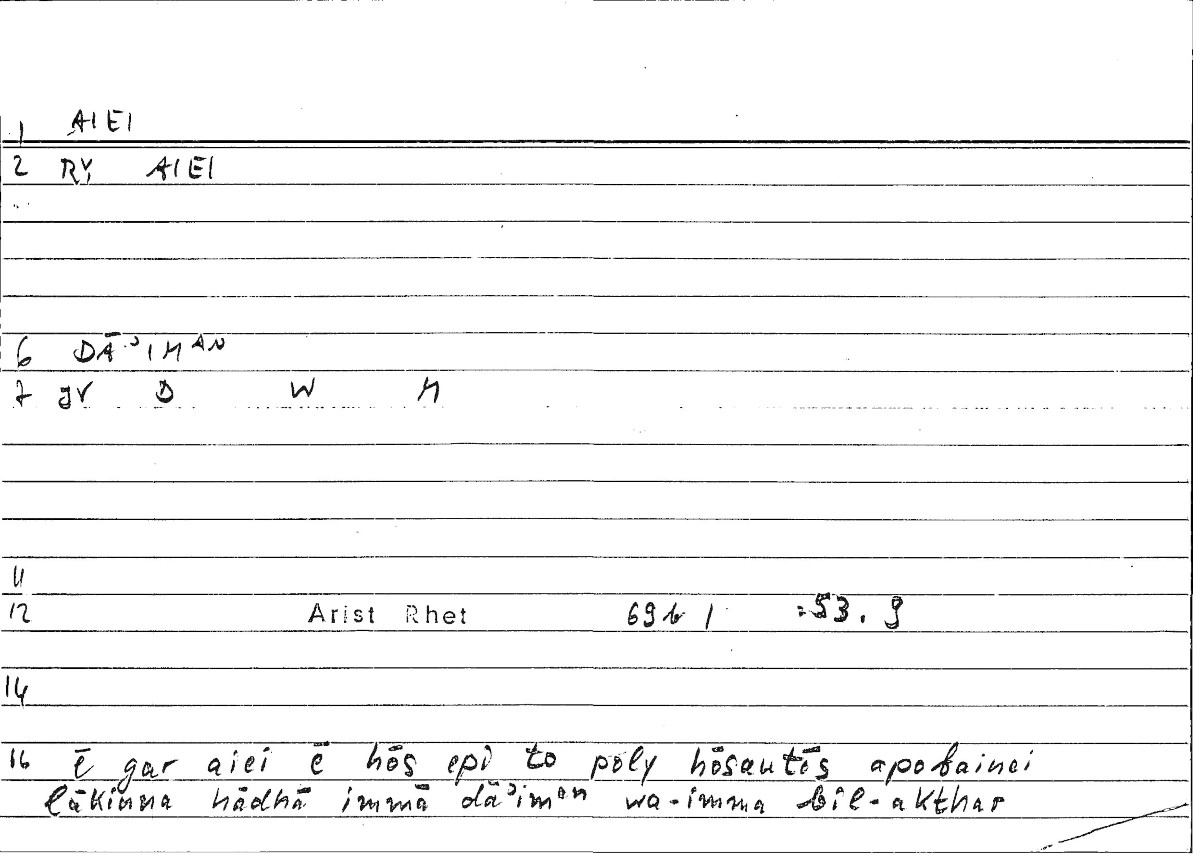 1 AIEI
2 RY, AIEI
6 DĀʾIMAN
7 gr D W M
11
12 Arist Rhet 69b 1 :53.9
14
16 ē gar aiei ē hōs epi to poly hōsautōs apobainei
lākinna hādhā immā dāʾiman wa-imma bil-akthar